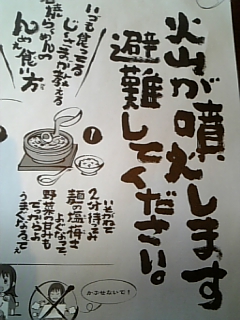 火山が噴火します
避難してください。
いつも食ってる
が教える
石焼らーめんの
んめぇ食い方
1
2分待つ
麺の塩梅も
よくなって、
野菜の甘みも
でっからよ
うまぐなるでぇ
かぶせないで!